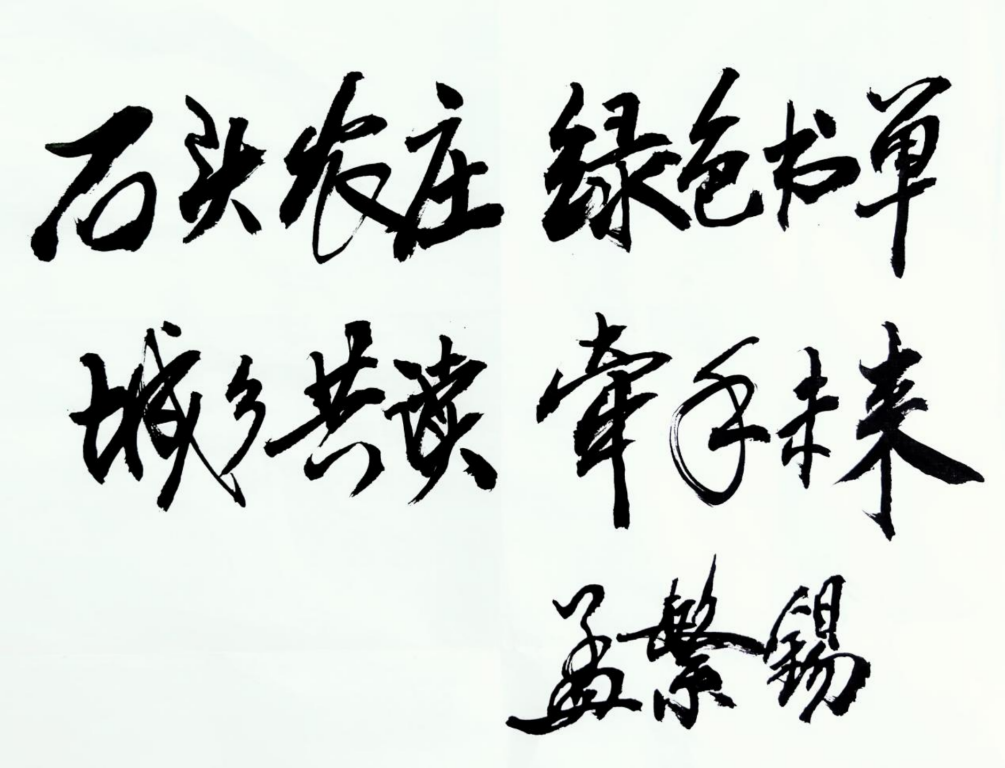 石头农庄 绿色书单
城乡共读 牵手未来
孟繁锡